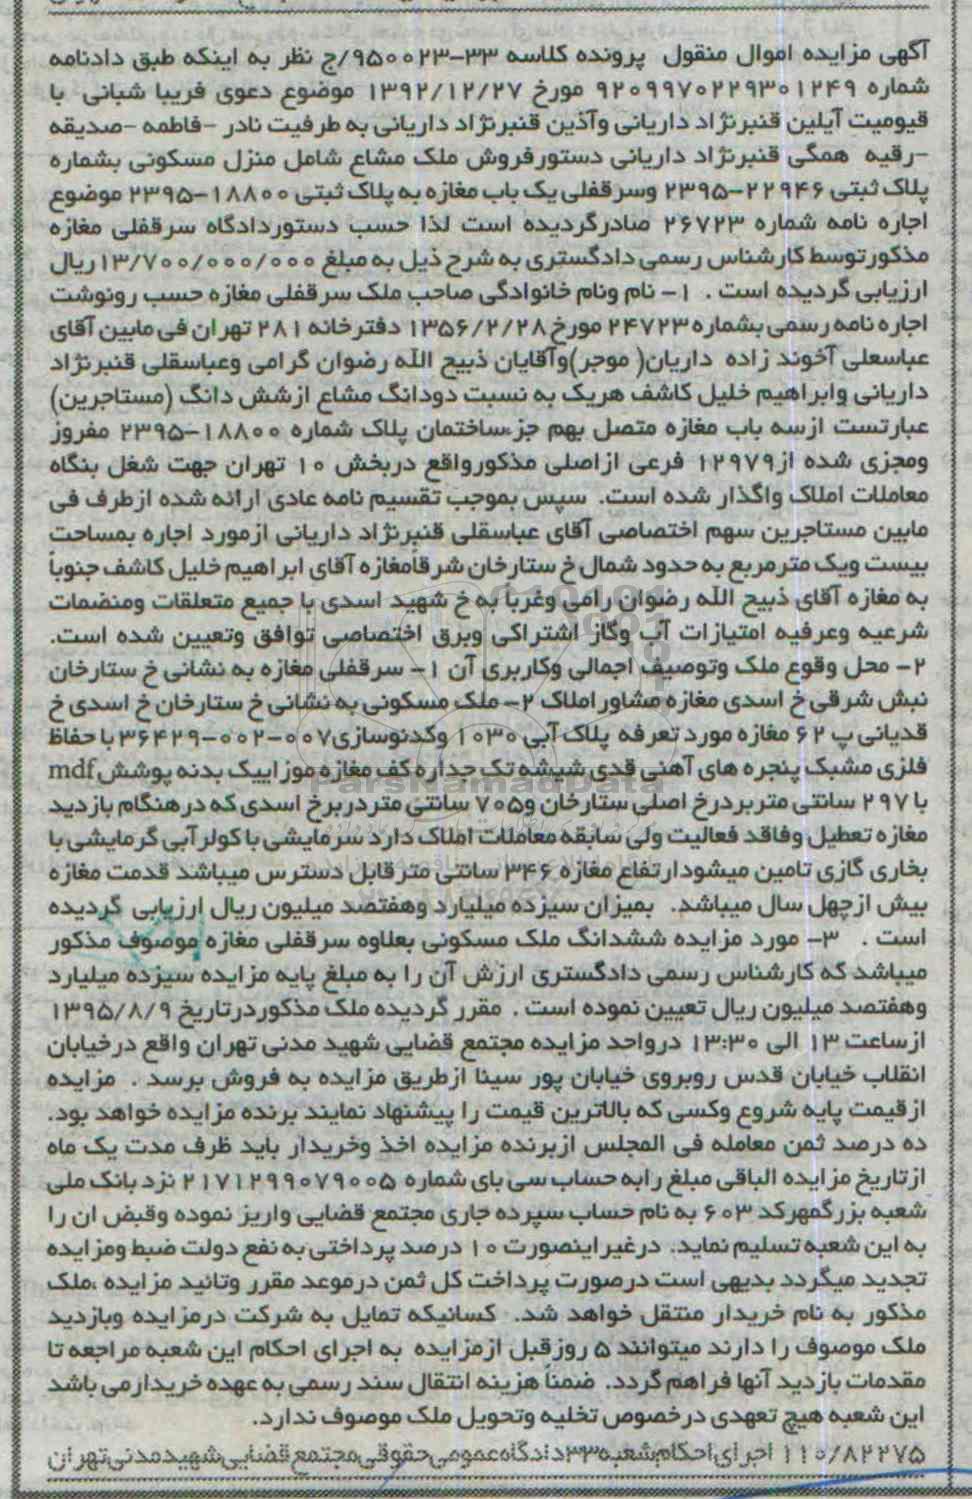 آگهی مزایده اموال منقول پرونده کلاسه ۳۳-۹۵۰۰۲۳/ج نظر به اینکه طبق دادنامه
شماره ۹۲۰۹۹۷۰۲۲۹۳۰۱۲۴۹ مورخ ۱۳۹۲/۱۲/۲۷ موضوع دعوی فریبا شبانی با
قیومیت آیلین قنبرنژاد داریانی وآذین قنبرنژاد داریانی به طرفیت نادر -فاطمه -صدیقه
-رقیه همگی قنبرنژاد داریانی دستورفروش ملک مشاع شامل منزل مسکونی بشماره
پلاک ثبتی ۲۲۹۴۶-۲۳۹۵ وسرقفلی یک باب مغازه به پلاک ثبتی ۱۸۸۰۰-۲۳۹۵ موضوع
اجاره نامه شماره ۲۶۷۲۳ صادرگردیده است لذا حسب دستوردادگاه سرقفلی مغازه
مذکورتوسط کارشناس رسمی دادگستری به شرح ذیل به مبلغ ۱۳/۷۰۰/۰۰۰/۰۰۰ریال
ارزیابی گردیده است . ۱- نام ونام خانوادگی صاحب ملک سرقفلی مغازه حسب رونوشت
اجاره نامه رسمی بشماره ۲۴۷۲۳ مورخ ۱۳۵۶/۲/۲۸ دفترخانه ۲۸۱ تهران فی مابین آقای
عباسعلی آخوند زاده داریان( موجر)وآقایان ذبیح الله رضوان گرامی وعباسقلی قنبرنژاد
داریانی وابراهیم خلیل کاشف هریک به نسبت دودانگ مشاع ازشش دانگ (مستاجرین)
عبارتست ازسه باب مغازه متصل بهم جزءساختمان پلاک شماره ۱۸۸۰۰-۲۳۹۵ مفروز
ومجزی شده از۱۲۹۷۹ فرعی ازاصلی مذکورواقع دربخش ۱۰ تهران جهت شغل بنگاه
معاملات املاک واگذار شده است. سپس بموجب تقسیم نامه عادی ارائه شده ازطرف فی
مابین مستاجرین سهم اختصاصی آقای عباسقلی قنبرنژاد داریانی ازمورد اجاره بمساحت
بیست ویک مترمربع به حدود شمال خ ستارخان شرقاًمغازه آقای ابراهیم خلیل کاشف جنوباً
به مغازه آقای ذبیح الله رضوان رامی وغربا به خ شهید اسدی با جمیع متعلقات ومنضمات
شرعیه وعرفیه امتیازات آب وگاز اشتراکی وبرق اختصاصی توافق وتعیین شده است.
۲- محل وقوع ملک وتوصیف اجمالی وکاربری آن ۱- سرقفلی مغازه به نشانی خ ستارخان
نبش شرقی خ اسدی مغازه مشاور املاک ۲- ملک مسکونی به نشانی خ ستارخان خ اسدی خ
قدیانی پ ۶۲ مغازه مورد تعرفه پلاک آبی ۱۰۳۰ وکدنوسازی۰۰۷-۰۰۲-۳۶۴۲۹ با حفاظ
فلزی مشبک پنجره های آهنی قدی شیشه تک جداره کف مغازه موزاییک بدنه پوشش mdf
با ۲۹۷ سانتی متربردرخ اصلی ستارخان و۷۰۵ سانتی متردربرخ اسدی که درهنگام بازدید
مغازه تعطیل وفاقد فعالیت ولی سابقه معاملات املاک دارد سرمایشی با کولرآبی گرمایشی با
بخاری گازی تامین میشودارتفاع مغازه ۳۴۶ سانتی مترقابل دسترس میباشد قدمت مغازه
بیش ازچهل سال میباشد. بمیزان سیزده میلیارد وهفتصد میلیون ریال ارزیابی گردیده
است . ۳- مورد مزایده ششدانگ ملک مسکونی بعلاوه سرقفلی مغازه موصوف مذکور
میباشد که کارشناس رسمی دادگستری ارزش آن را به مبلغ پایه مزایده سیزده میلیارد
وهفتصد میلیون ریال تعیین نموده است . مقرر گردیده ملک مذکوردرتاریخ ۱۳۹۵/۸/۹
ازساعت ۱۳ الی ۱۳:۳۰ درواحد مزایده مجتمع قضایی شهید مدنی تهران واقع درخیابان
انقلاب خیابان قدس روبروی خیابان پور سینا ازطریق مزایده به فروش برسد . مزایده
ازقیمت پایه شروع وکسی که بالاترین قیمت را پیشنهاد نمایند برنده مزایده خواهد بود.
ده درصد ثمن معامله فی المجلس ازبرنده مزایده اخذ وخریدار باید ظرف مدت یک ماه
ازتاریخ مزایده الباقی مبلغ رابه حساب سی بای شماره ۲۱۷۱۲۹۹۰۷۹۰۰۵ نزد بانک ملی
شعبه بزرگمهرکد ۶۰۳ به نام حساب سپرده جاری مجتمع قضایی واریز نموده وقبض ان را
به این شعبه تسلیم نماید. درغیراینصورت ۱۰ درصد پرداختی به نفع دولت ضبط ومزایده
تجدید میگردد بدیهی است درصورت پرداخت کل ثمن درموعد مقرر وتائید مزایده ،ملک
مذکور به نام خریدار منتقل خواهد شد. کسانیکه تمایل به شرکت درمزایده وبازدید
ملک موصوف را دارند میتوانند ۵ روزقبل ازمزایده به اجرای احکام این شعبه مراجعه تا
مقدمات بازدید آنها فراهم گردد. ضمناً هزینه انتقال سند رسمی به عهده خریدارمی باشد
این شعبه هیچ تعهدی درخصوص تخلیه وتحویل ملک موصوف ندارد.
۱۱۰/۸۲۲۷۵ اجرای احکام شعبه ۳۳ دادگاه عمومی حقوقی مجتمع قضایی شهید مدنی تهران
ParsNamadData